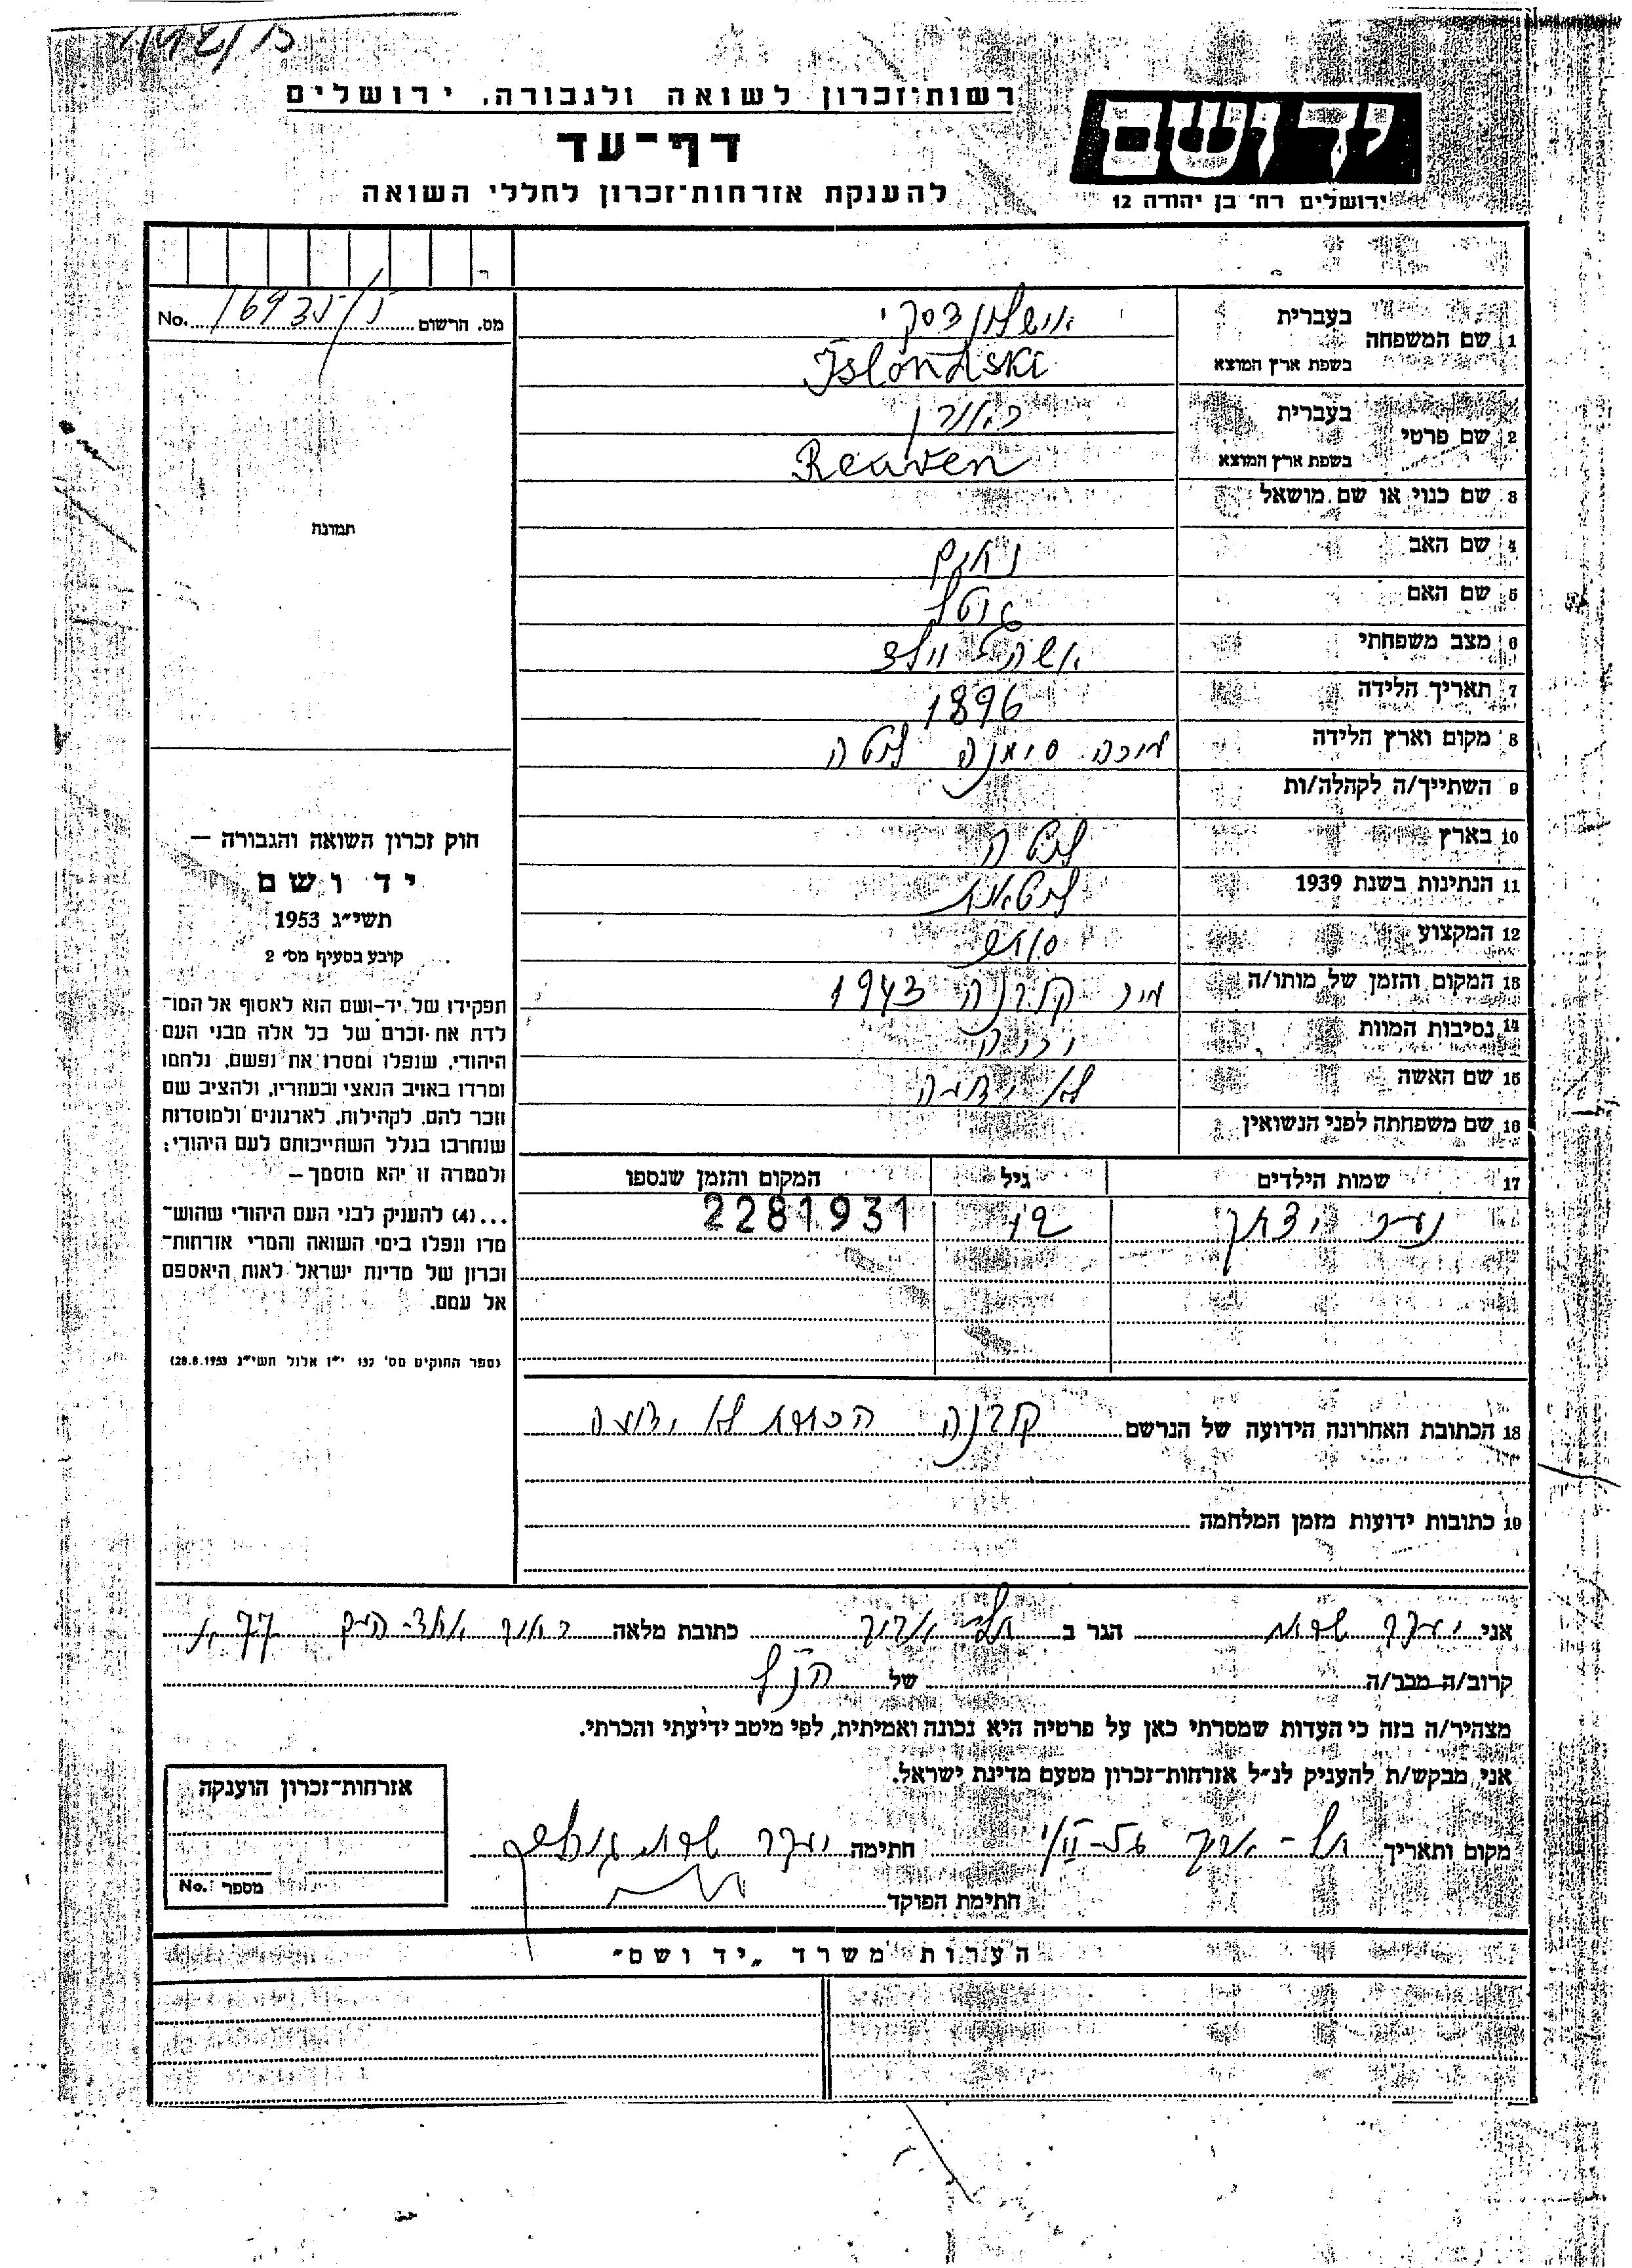 רשות־זכרון לשואה ולגבורה, ירושלים
דף־עד
להענקת אזרחות־זכרון לחללי השואה
יד ושם
ירושלים רח׳ בן יהודה 12
מס. הרשום No. 16935/ל
1 שם המשפחה בעברית
בשפת ארץ המוצא Islondski
2 שם פרטי בעברית ראובן
בשפת ארץ המוצא Reuven
3 שם כנוי או שם מושאל
4 שם האב נחום
5 שם האם גיטל
6 מצב משפחתי אשה וילד
7 תאריך הלידה 1896
8 מקום וארץ הלידה ליטה
9 השתייך/ה לקהלה/ות
10 בארץ ליטה
11 הנתינות בשנת 1939 ליטאית
12 המקצוע סוחר
13 המקום והזמן של מותו/ה קובנה 1943
14 נסיבות המוות
15 שם האשה לא ידועה
16 שם משפחתה לפני הנשואין
17 שמות הילדים גיל המקום והזמן שנספו
יצחק
2281931
18 הכתובת האחרונה הידועה של הנרשם קובנה הכתובת לא ידועה
19 כתובות ידועות מזמן המלחמה
תמונה
חוק זכרון השואה והגבורה —
יד ושם
תשי״ג 1953
קובע בסעיף מס׳ 2
תפקידו של יד־ושם הוא לאסוף אל המו־
לדת את זכרם של כל אלה מבני העם
היהודי, שנפלו ומסרו את נפשם, נלחמו
ומרדו באויב הנאצי ובעוזריו, ולהציב שם
וזכר להם, לקהילות, לארגונים ולמוסדות
שנחרבו בגלל השתייכותם לעם היהודי;
ולמטרה זו יהא מוסמך —
...(4) להעניק לבני העם היהודי שהוש־
מדו ונפלו בימי השואה והמרי אזרחות־
זכרון של מדינת ישראל לאות היאספם
אל עמם.
(ספר החוקים מס׳ 132 י״ז אלול תשי״ג 28.8.1953)
אני יעקב הגר ב תל אביב כתובת מלאה 77
קרוב/ה מכר/ה של הנ"ל
מצהיר/ה בזה כי העדות שמסרתי כאן על פרטיה היא נכונה ואמיתית, לפי מיטב ידיעתי והכרתי.
אני מבקש/ת להעניק לנ״ל אזרחות־זכרון מטעם מדינת ישראל.
מקום ותאריך תל-אביב חתימה יעקב
חתימת הפוקד
אזרחות־זכרון הוענקה
מספר No.
הערות משרד „יד ושם״